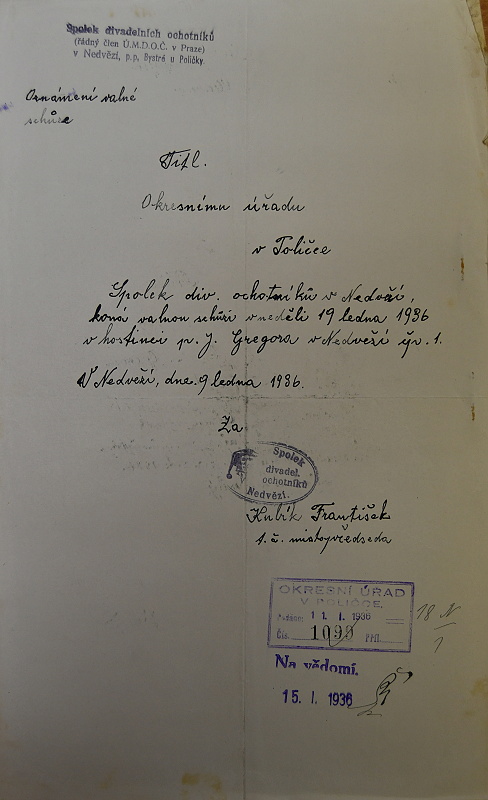 Spolek divadelních ochotníků
(řádný člen Ú.M.D.O.Č. v Praze)
v Nedvězí, p.p. Bystré u Poličky
Oznámení valné
schůze
Titl.
Okresnímu úřadu
v Poličce
Spolek div. ochotníků v Nedvězí,
koná valnou schůzi v neděli 19 ledna 1936
v hostinci p. J. Gregora v Nedvězí čp. 1.
V Nedvězí, dne 9 ledna 1936.
Za
Spolek
divadel.
ochotníků
Nedvězí.
Kubík František
t. č. místopředseda
OKRESNÍ ÚŘAD
V POLIČCE.
Podáno: 11. I. 1936
Čís. 1093 Příl.
18 N
1
Na vědomí.
15. I. 1936